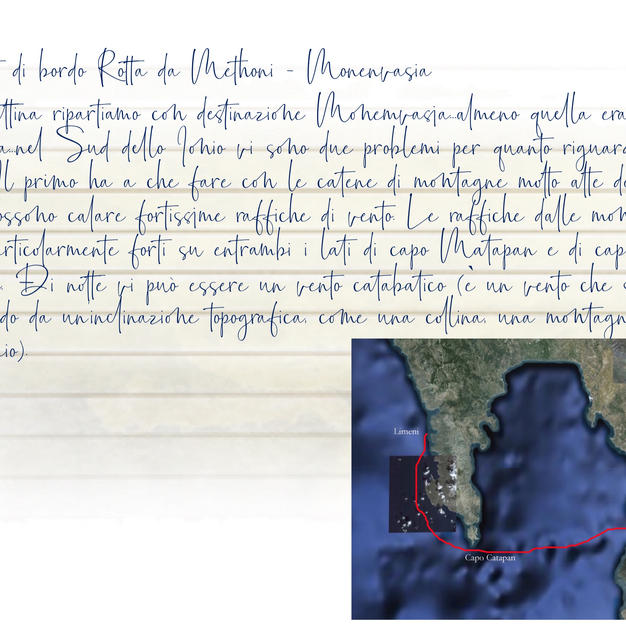 di bordo Rotta da Methoni - Monenvasia
ttina ripartiamo con destinazione Monemvasia...almeno quella era
a...nel Sud dello Ionio vi sono due problemi per quanto riguard
Il primo ha a che fare con le catene di montagne molto alte d
ossono calare fortissime raffiche di vento. Le raffiche dalle mon
articolarmente forti su entrambi i lati di capo Matapan e di cap
. Di notte vi può essere un vento catabatico (è un vento che
do da un'inclinazione topografica, come una collina, una montagn
io).
Limeni
Capo Catapan